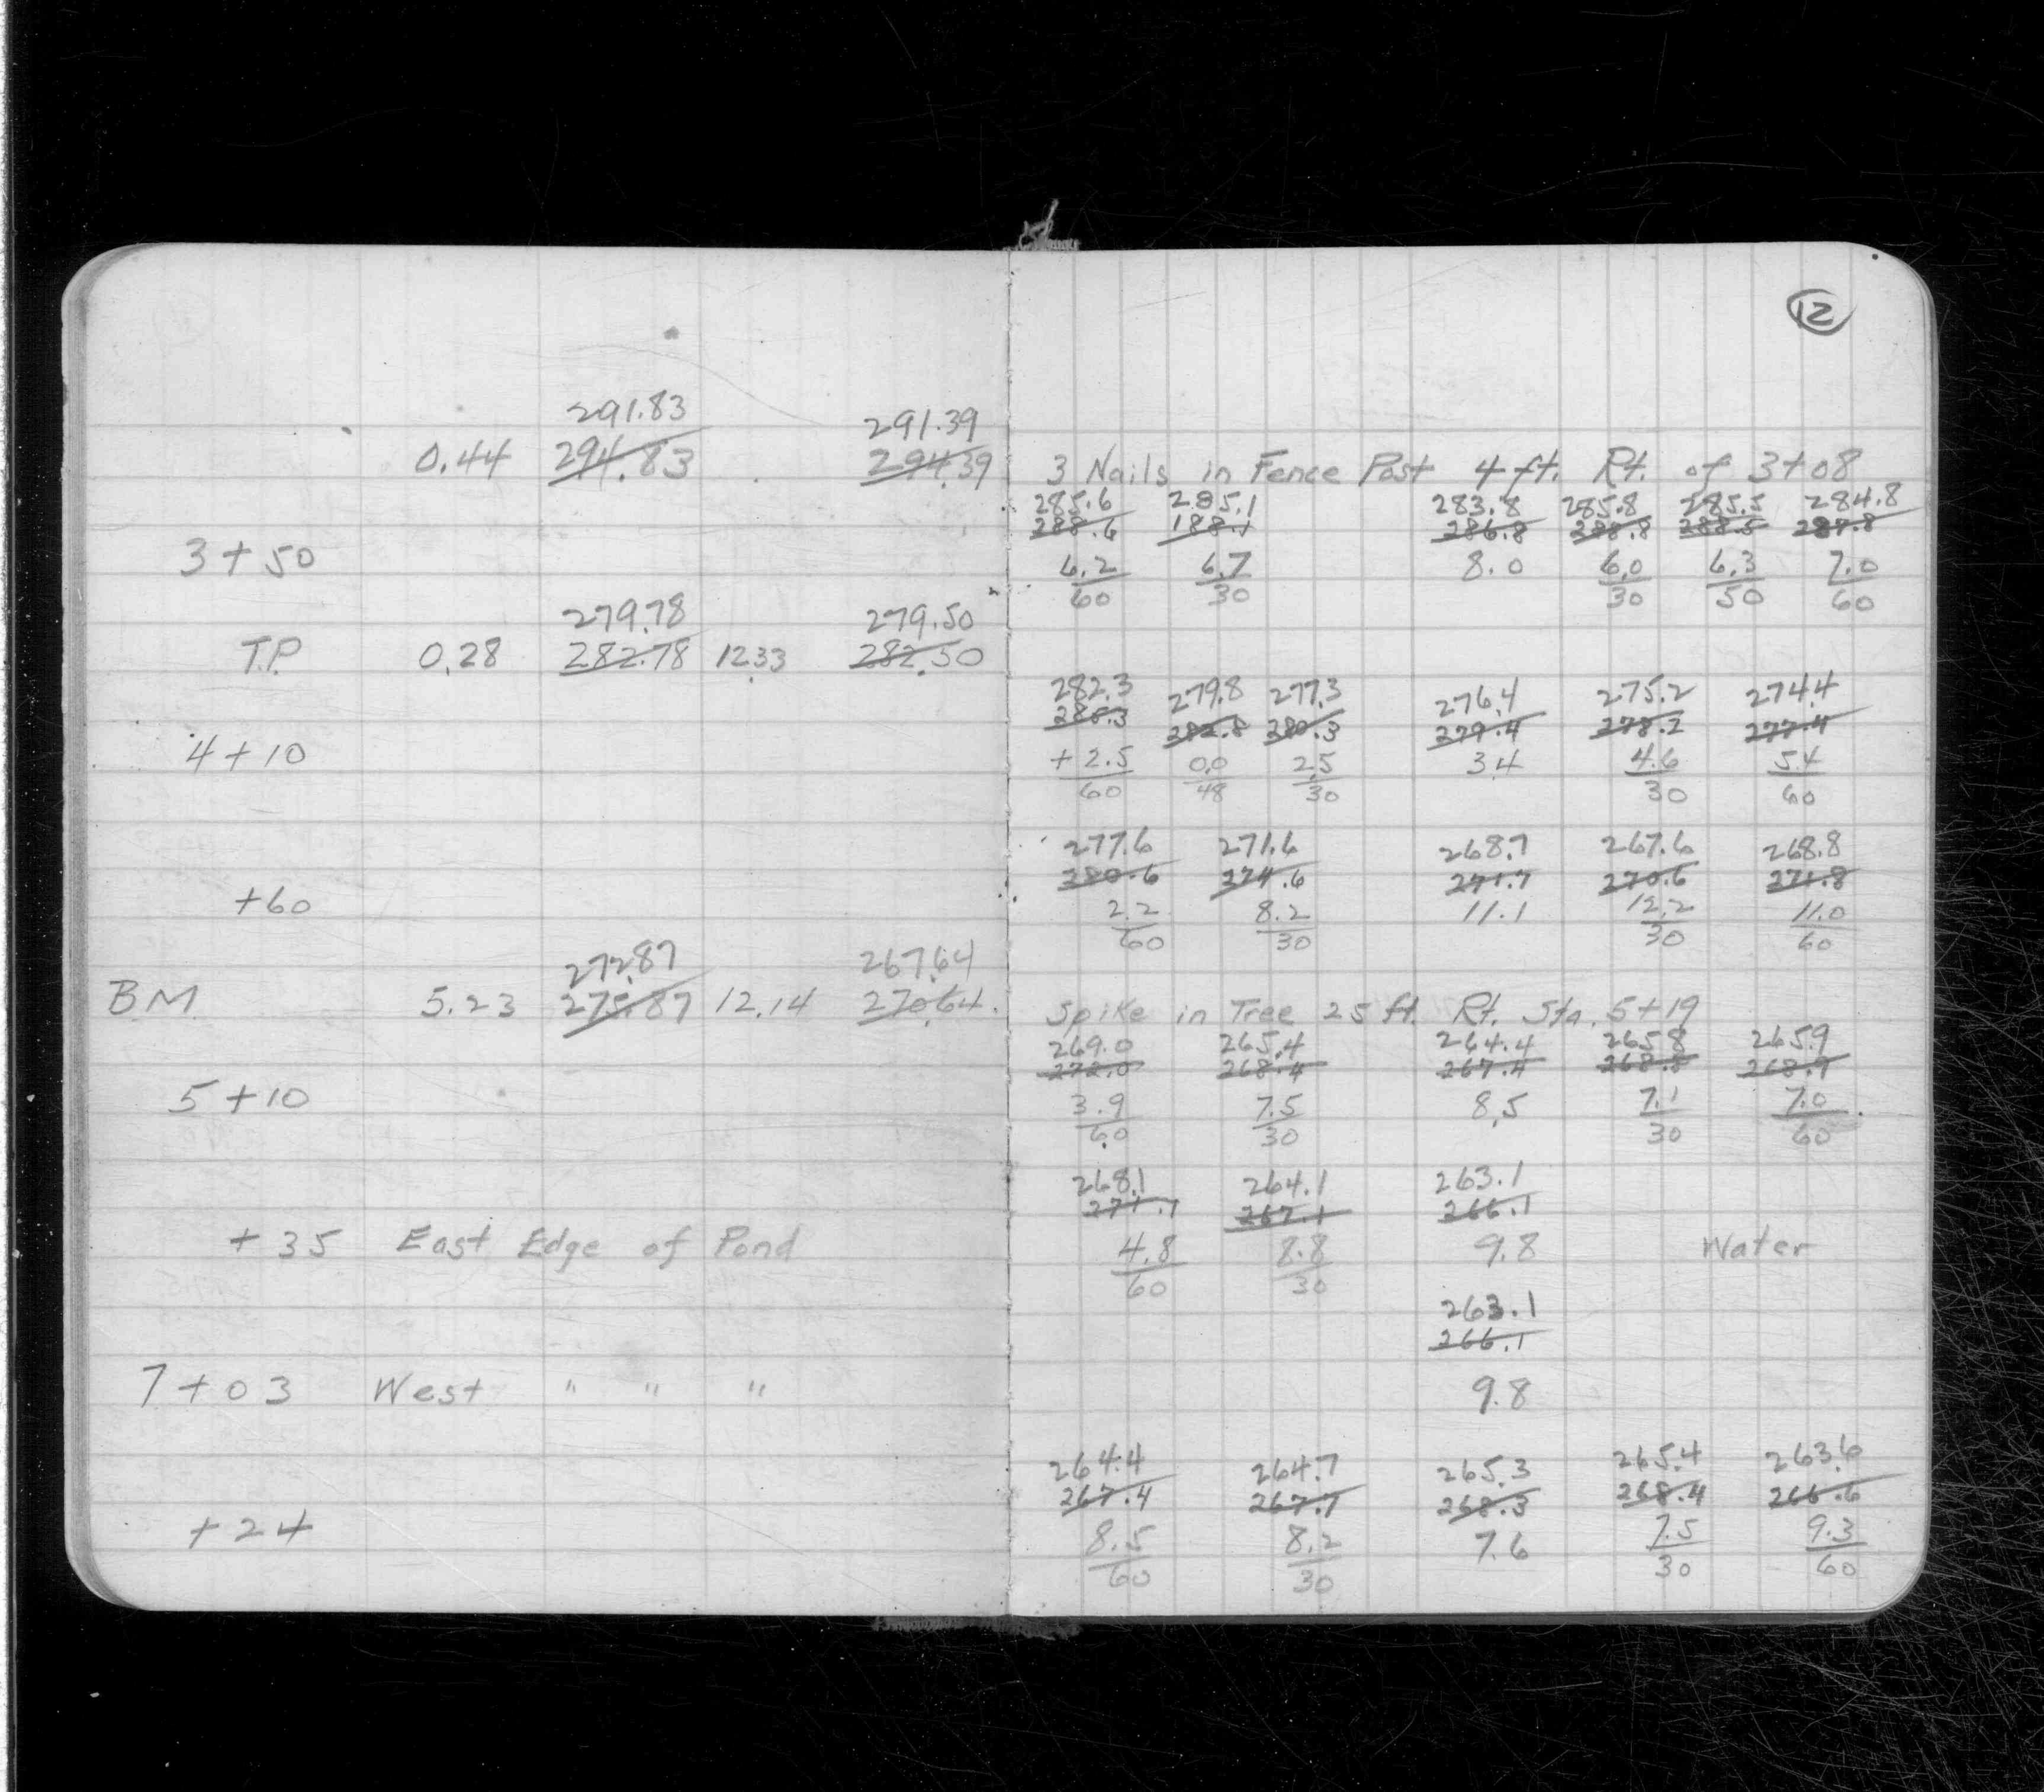 12
291.83 291.39
0.44 294.83 294.39 3 Nails in Fence Post 4 ft. Rt. of 3+08
285.6 285.1 283.8 285.8 285.5 284.8
288.6 188.1 286.8 288.8 288.5 287.8
3+50 6.2 6.7 8.0 6.0 6.3 7.0
60 30 30 50 60
279.78 279.50
T.P. 0.28 282.78 12.33 282.50
282.3 279.8 277.3 276.4 275.2 274.4
285.3 282.8 280.3 279.4 278.2 277.4
4+10 +2.5 0.0 2.5 3.4 4.6 5.4
60 48 30 30 60
277.6 271.6 268.7 267.6 268.8
280.6 274.6 271.7 270.6 271.8
+60 2.2 8.2 11.1 12.2 11.0
60 30 30 60
272.87 267.64
BM 5.23 275.87 12.14 270.64 Spike in Tree 25 ft. Rt. Sta. 5+19
269.0 265.4 264.4 265.8 265.9
272.0 268.4 267.4 268.8 268.9
5+10 3.9 7.5 8.5 7.1 7.0
60 30 30 60
268.1 264.1 263.1
271.1 267.1 266.1
+35 East Edge of Pond 4.8 8.8 9.8 Water
60 30
263.1
266.1
7+03 West " " " 9.8
264.4 264.7 265.3 265.4 263.6
267.4 267.7 268.3 268.4 266.6
+24 8.5 8.2 7.6 7.5 9.3
60 30 30 60